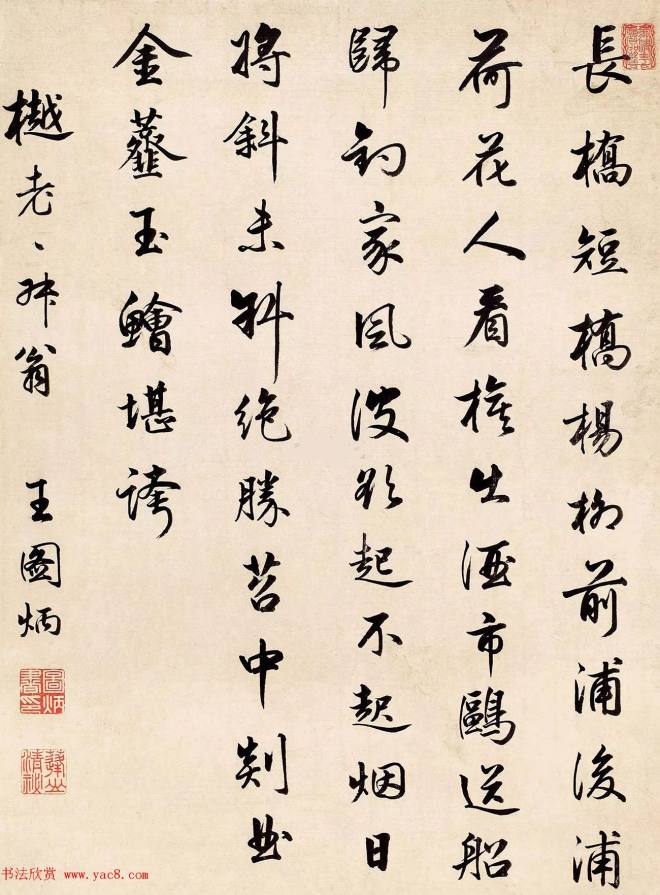 長橋短橋楊柳前浦後浦
荷花人看旗出酒市鷗送船
歸釣家風波欲起不起烟日
將斜未斜絶勝苕中剡曲
金虀玉鱠堪誇
樾老〻翁 王圖炳
书法欣赏 www.yac8.com